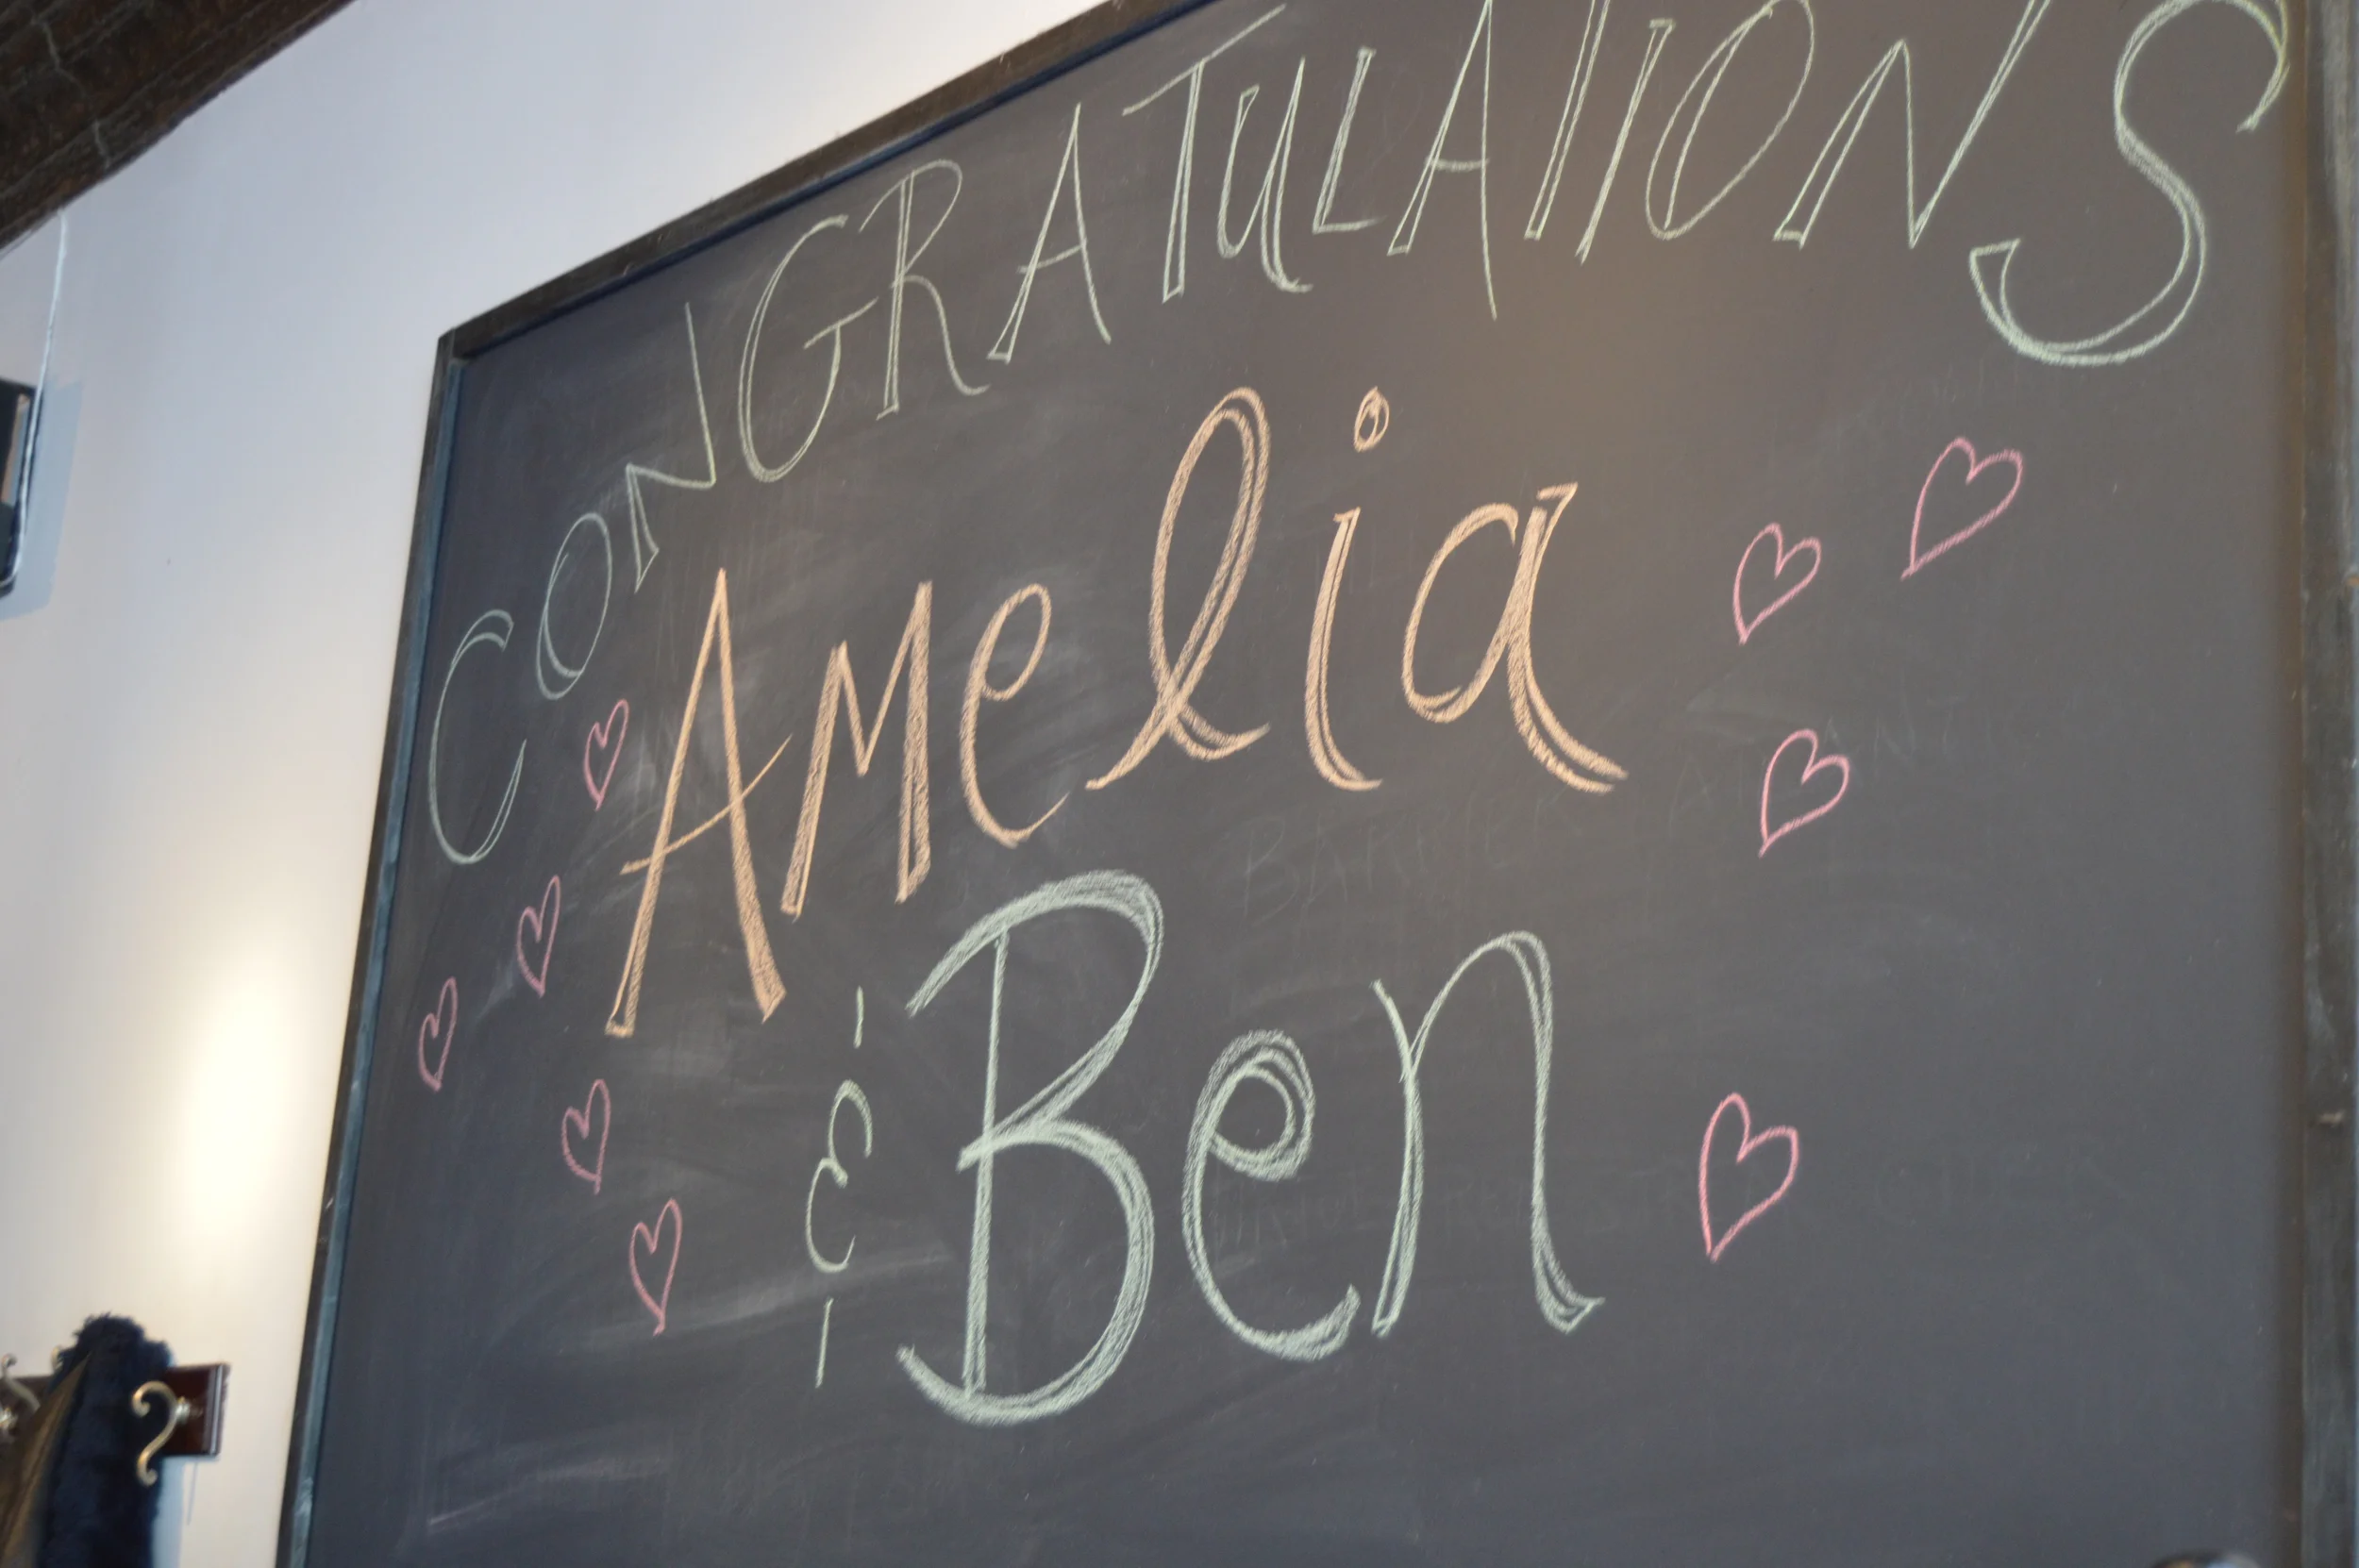 CONGRATULATIONS
Amelia
& Ben